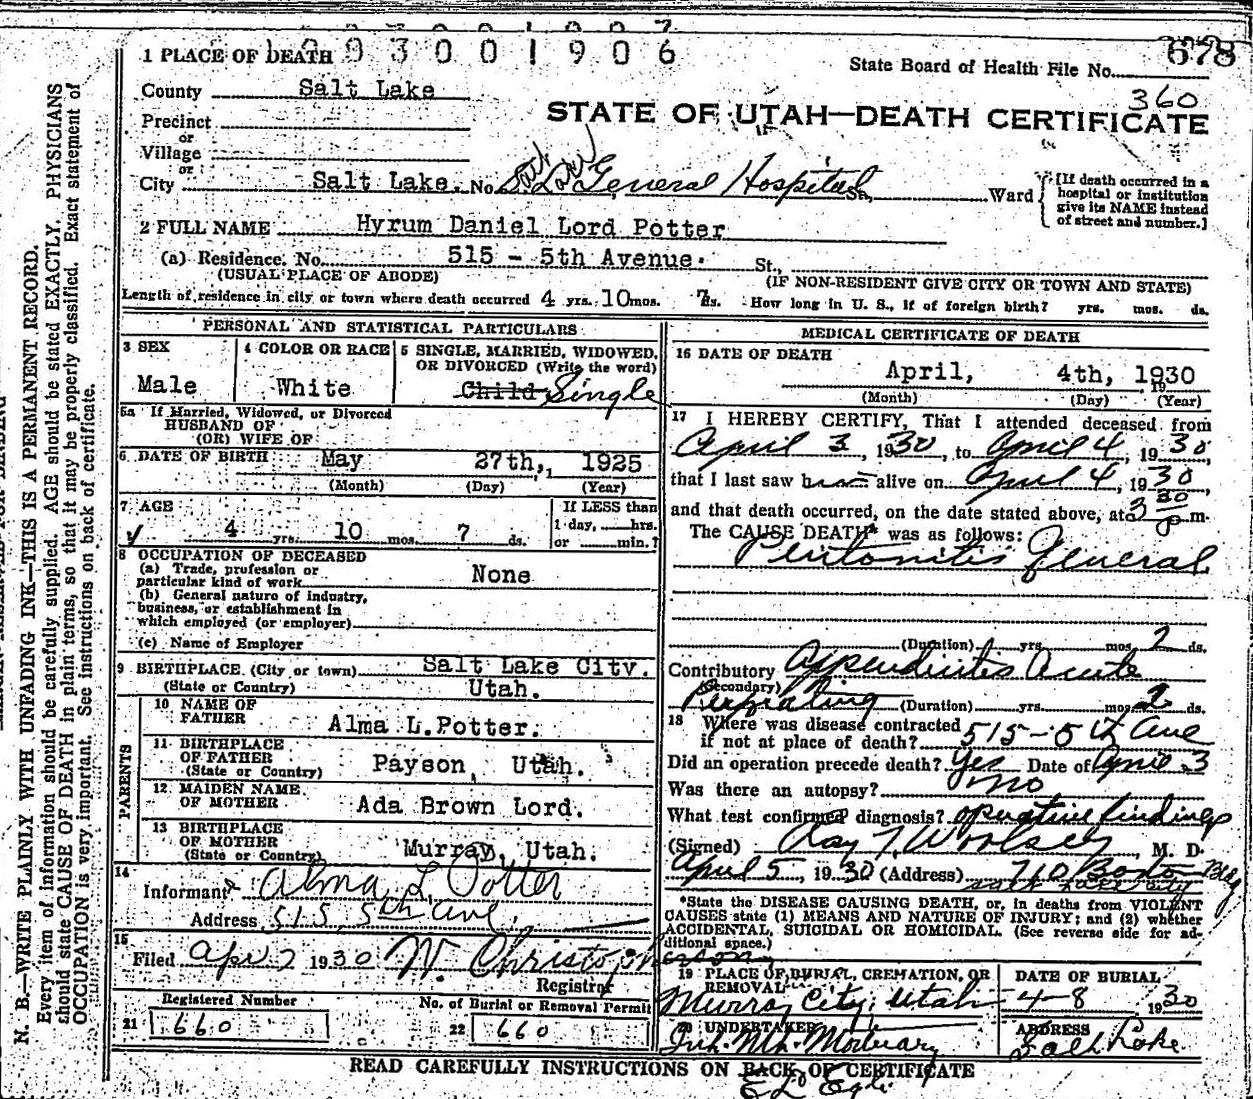 1 PLACE OF DEATH 1 9 0 3 0 0 1 9 0 6
State Board of Health File No. 678
360
County Salt Lake
STATE OF UTAH—DEATH CERTIFICATE
Precinct
or
Village
or
City Salt Lake. No. Salt Lake General Hospital St., Ward
[If death occurred in a hospital or institution give its NAME instead of street and number.]
2 FULL NAME Hyrum Daniel Lord Potter
(a) Residence. No. 515 - 5th Avenue. St.,
(USUAL PLACE OF ABODE) (IF NON-RESIDENT GIVE CITY OR TOWN AND STATE)
Length of residence in city or town where death occurred 4 yrs. 10 mos. 7 ds. How long in U. S., if of foreign birth? yrs. mos. ds.
PERSONAL AND STATISTICAL PARTICULARS
3 SEX
Male
4 COLOR OR RACE
White
5 SINGLE, MARRIED, WIDOWED,
OR DIVORCED (Write the word)
Child Single
5a If Married, Widowed, or Divorced
HUSBAND OF
(OR) WIFE OF
6 DATE OF BIRTH May 27th, 1925
(Month) (Day) (Year)
7 AGE
4 yrs. 10 mos. 7 ds.
If LESS than
1 day, hrs.
or min.?
8 OCCUPATION OF DECEASED
(a) Trade, profession or
particular kind of work None
(b) General nature of industry,
business, or establishment in
which employed (or employer)
(c) Name of Employer
9 BIRTHPLACE. (City or town) Salt Lake City.
(State or Country) Utah.
PARENTS
10 NAME OF
FATHER Alma L.Potter.
11 BIRTHPLACE
OF FATHER
(State or Country) Payson, Utah.
12 MAIDEN NAME
OF MOTHER Ada Brown Lord.
13 BIRTHPLACE
OF MOTHER
(State or Country) Murray, Utah.
14
Informant Alma L. Potter
Address 515 5th Ave.
15
Filed Apr 7 1930 W. Christopherson
Registrar
Registered Number
21 660
No. of Burial or Removal Permit
22 660
MEDICAL CERTIFICATE OF DEATH
16 DATE OF DEATH
April, 4th, 1930
(Month) (Day) (Year)
17 I HEREBY CERTIFY, That I attended deceased from
April 3, 1930, to April 4, 1930
that I last saw alive on April 4, 1930,
and that death occurred, on the date stated above, at 3 30 p.m.
The CAUSE DEATH* was as follows:
Peritonitis General
(Duration) yrs. mos. 2 ds.
Contributory Appendicitis Acute
(Secondary)
(Duration) yrs. mos. 2 ds.
18 Where was disease contracted
if not at place of death? 515-5th Ave
Did an operation precede death? Yes Date of April 3
Was there an autopsy? no
What test confirmed diagnosis? operative findings
(Signed) Ray T Woolsey, M. D.
April 5, 1930 (Address) 710 Boston Bldg
Salt Lake City
*State the DISEASE CAUSING DEATH, or, in deaths from VIOLENT
CAUSES state (1) MEANS AND NATURE OF INJURY; and (2) whether
ACCIDENTAL, SUICIDAL OR HOMICIDAL. (See reverse side for ad-
ditional space.)
19 PLACE OF BURIAL, CREMATION, OR
REMOVAL
Murray City, Utah
DATE OF BURIAL
4-8 1930
20 UNDERTAKER
Mortuary
ADDRESS
Salt Lake
READ CAREFULLY INSTRUCTIONS ON BACK OF CERTIFICATE
N. B.—WRITE PLAINLY WITH UNFADING INK—THIS IS A PERMANENT RECORD.
Every item of information should be carefully supplied. AGE should be stated EXACTLY. PHYSICIANS
should state CAUSE OF DEATH in plain terms, so that it may be properly classified. Exact statement of
OCCUPATION is very important. See instructions on back of certificate.